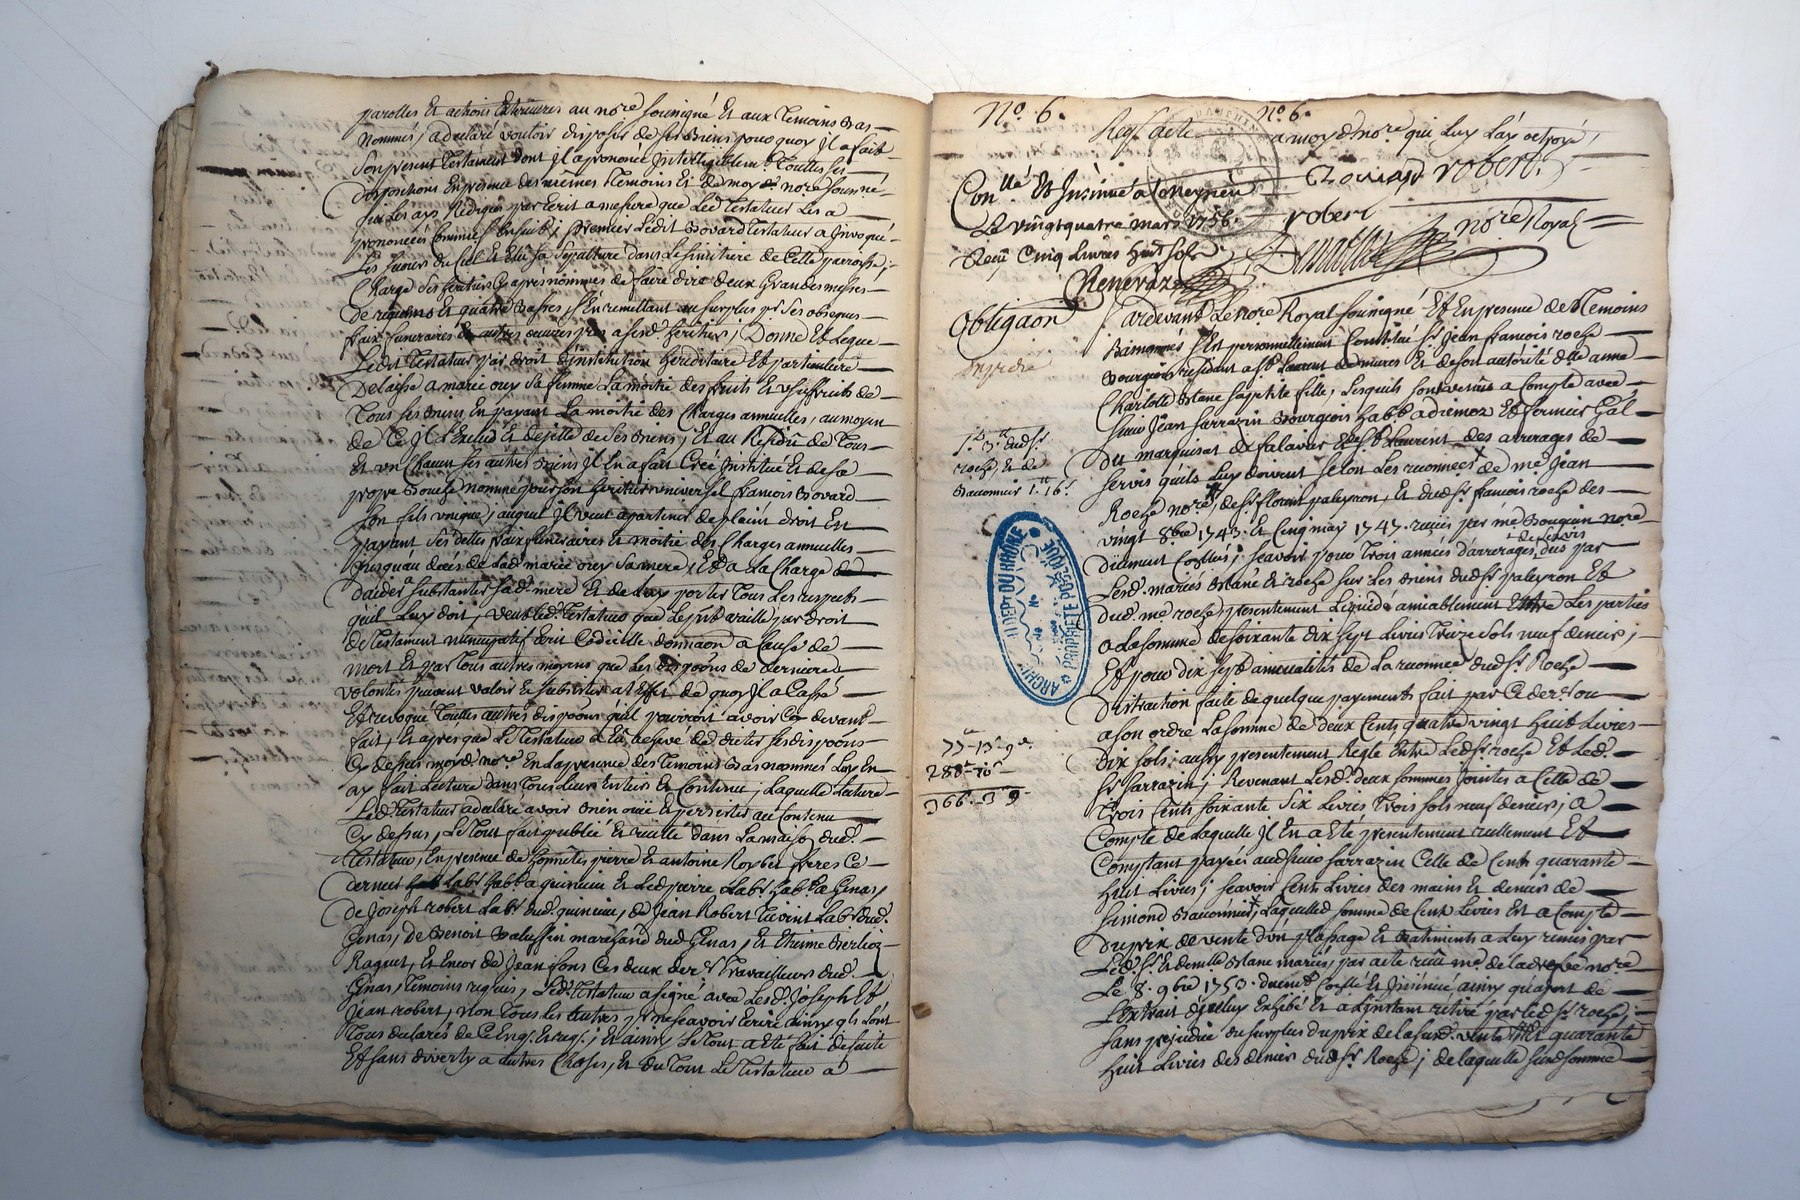 parolles Et actions Exterieures au nore. soussigné Et aux Temoins bas
Nommés, a declaré vouloir disposer de ses biens pour quoy Il a fait
son present Testament dont Il a prononcé Intelligiblemt. Touttes ses
dispositions En presence des mêmes Temoins Et de moy d. nore. soussigné
qui Les ay Rédigés par Ecrit a mesure que Led. Testateur Les a
prononcées comme s'ensuit; premier Ledit Bovard Testateur a Invoqué
Les faveurs du Ciel Et Elû sa sepulture dans Le simitiere de Cette parroisse;
Charge ses heritiers Cy apres nommés de faire dire deux Grandes messes
de requiems Et quatre basses, s'En remettant au surplus pr. ses obseques
fraix funeraires Et autres oeuvres pies a sesd. heritiers; Donne Et Legue
Ledit Testateur par droit d'institution hereditaire Et particuliere
Delaisse a marie ory sa femme La moitié des fruits Et usufruits de
Tous ses biens En payant La moitié des Charges annuelles, au moyen
de Ce Il L'Exclud Et dejette de ses biens; Et au Residû de Tous
Et un Chacun ses autres biens Il En a fait Créé Institué Et de sa
propre bouche nommé pour son heritier universel francois Bovard
son fils unique, auquel Il veut apartenir de plain droit En
payant ses dettes fraix funeraires Et moitié des Charges annuelles
jusqu'au décés de Lad. marie ory sa mere, Et a La Charge
d'aider a substanter sad. mere Et de Luy porter Tous Les respects
qu'il Luy doit, veut Led. Testateur que Le pnt. vaille par droit
de Testament nuncupatif Ecrit Codicille donnaon a Cause de
mort Et par Tous autres moyens que Les dispoons de derniere
volontés peuvent valoir Et subsister a L'Effet de quoy Il a Cassé
Et revoqué Touttes autres dispoons qu'il pourroit avoir Cy devant
fait, Et apres que Le Testateur a Eû achevé de dicter ses dispoons
Cy dessus moy d. nore. En La presence des Temoins bas nommés Luy En
ay fait Lecture dans Tout Leur Entier Et Contenu, Laquelle Lecture
Led. Testateur a declaré avoir bien ouïe Et persister au Contenu
Cy dessus, Le Tout fait publié Et recité dans La maison dud.
Testateur, En presence de honnêtes pierre Et antoine Roybet freres Ce
dernier Labr. habt. a quincieu Et Led. pierre Labr. habt. a Genas,
de Joseph robert Labr. dud. quincieu, de Jean Robert Labr. dud.
Genas, de Benoit marchand dud. Genas, Et Etienne Berlioz
Raquet, Et Encor de Jean fons Ces deux ders. Travailleurs dud.
Genas, Temoins requis, Led. Testateur a signé avec Lesd. Joseph Et
Jean robert, non Tous Les autres pr. ne sçavoir Ecrire ainsy qls. L'ont
Tous declarés de Ce Enqs. Et reqs.; Et ainsy Le Tout a Eté fait de suite
Et sans diverty a autres Choses, Et du Tout Le Testateur a
No. 6. No. 6.
Reqs. acte a moy d. nore. qui Luy L'ay octroyé,
Bovard robert.
Conllé. Et Insinué a
Le vingt quatre mars 1756. robert
Reçû Cinq Livres huit sols nore Royal
Renevaz
Obligaon
Expedié
Pardevant Le nore. Royal soussigné Et En presence des Temoins
Bas nommés s'Est personnellement Constitué sr. Jean francois roche
Bourgeois residant a St. Laurent de mures Et de son autorité dlle. anne
Charlotte blanc sa petite fille, Lesquels sont venus a Compte avec
sieur Jean sarrazin Bourgeois habt. a diemoz Et fermier Gal.
du marquisat de falavier Et de St. Laurent des arrerages de
servis qu'ils Luy doivent selon Les reconnces. de me. Jean
Roche nore., de sr. florent paleyron, Et dud. sr. francois roche des
vingt 8bre 1743. Et Cinq may 1747. reçües par me. nore.
düement Conllés; sçavoir pour Trois années d'arrerages de servis dus par
Lesd. mariés blanc Et roche sur Les biens dud. sr. paleyron Et
dud. me. roche presentement Liquidé amiablement Entre Les parties
a La somme de soixante dix sept Livres Treize sols neuf deniers,
Et pour dix sept annualités de La reconnce. dud. sr. Roche
Distraction faite de quelque payements fait par Ce der. ou
a son ordre La somme de deux Cents quatre vingt huit Livres
dix sols, aussy presentement Reglé Entre Led. sr. roche Et Led.
sr. sarrazin; Revenant Lesd. deux sommes Jointes a Celle de
Trois Cents soixante six Livres Trois sols neuf deniers; a
Compte de Laquelle Il En a Eté presentement reellement Et
Comptant payées aud. sieur sarrazin Celle de Cent quarante
huit Livres; sçavoir Cent Livres des mains Et deniers de
simond Bauconnier, Laquelle somme de Cent Livres Est a Compte
du prix de vente d'un plassage Et Batiments a Luy remis par
Led. sr. Et demlle. blanc mariés, par acte reçû me. nore
Le 8. 9bre 1753. düemt. Conllé Et Insinué ainsy qu'apert de
L'Extrait d'jcelluy Exhibé Et a L'instant retiré par Led. sr. roche;
sans prejudice du surplus du prix de La susd. vente, Et quarante
huit Livres des deniers dud. sr. Roche; de laquelle susd. somme
roche Et de
Bauconnier
77lt 13s 9d.
288lt 10s
366. 3 9
ARCHIVES DU DEPT DU RHÔNE
PROPRIÉTÉ PUBLIQUE
No